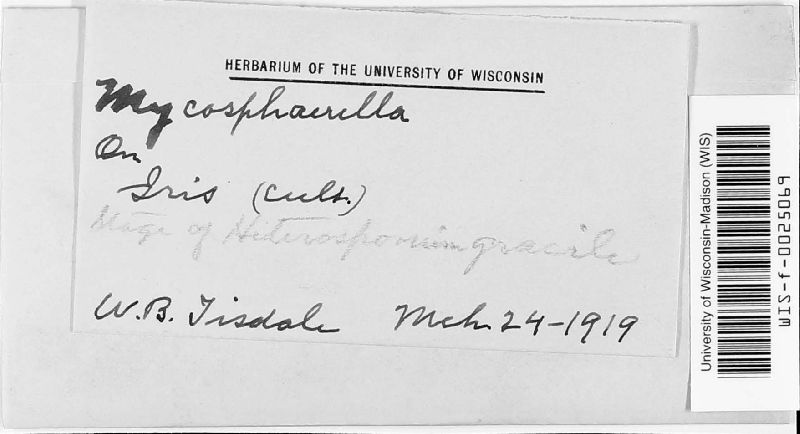 HERBARIUM OF THE UNIVERSITY OF WISCONSIN
Mycosphaerella
On
Iris (cult.)
Stage of Heterosporium gracile
W. B. Tisdale Mch. 24-1919
University of Wisconsin-Madison (WIS)
WIS-f-0025069